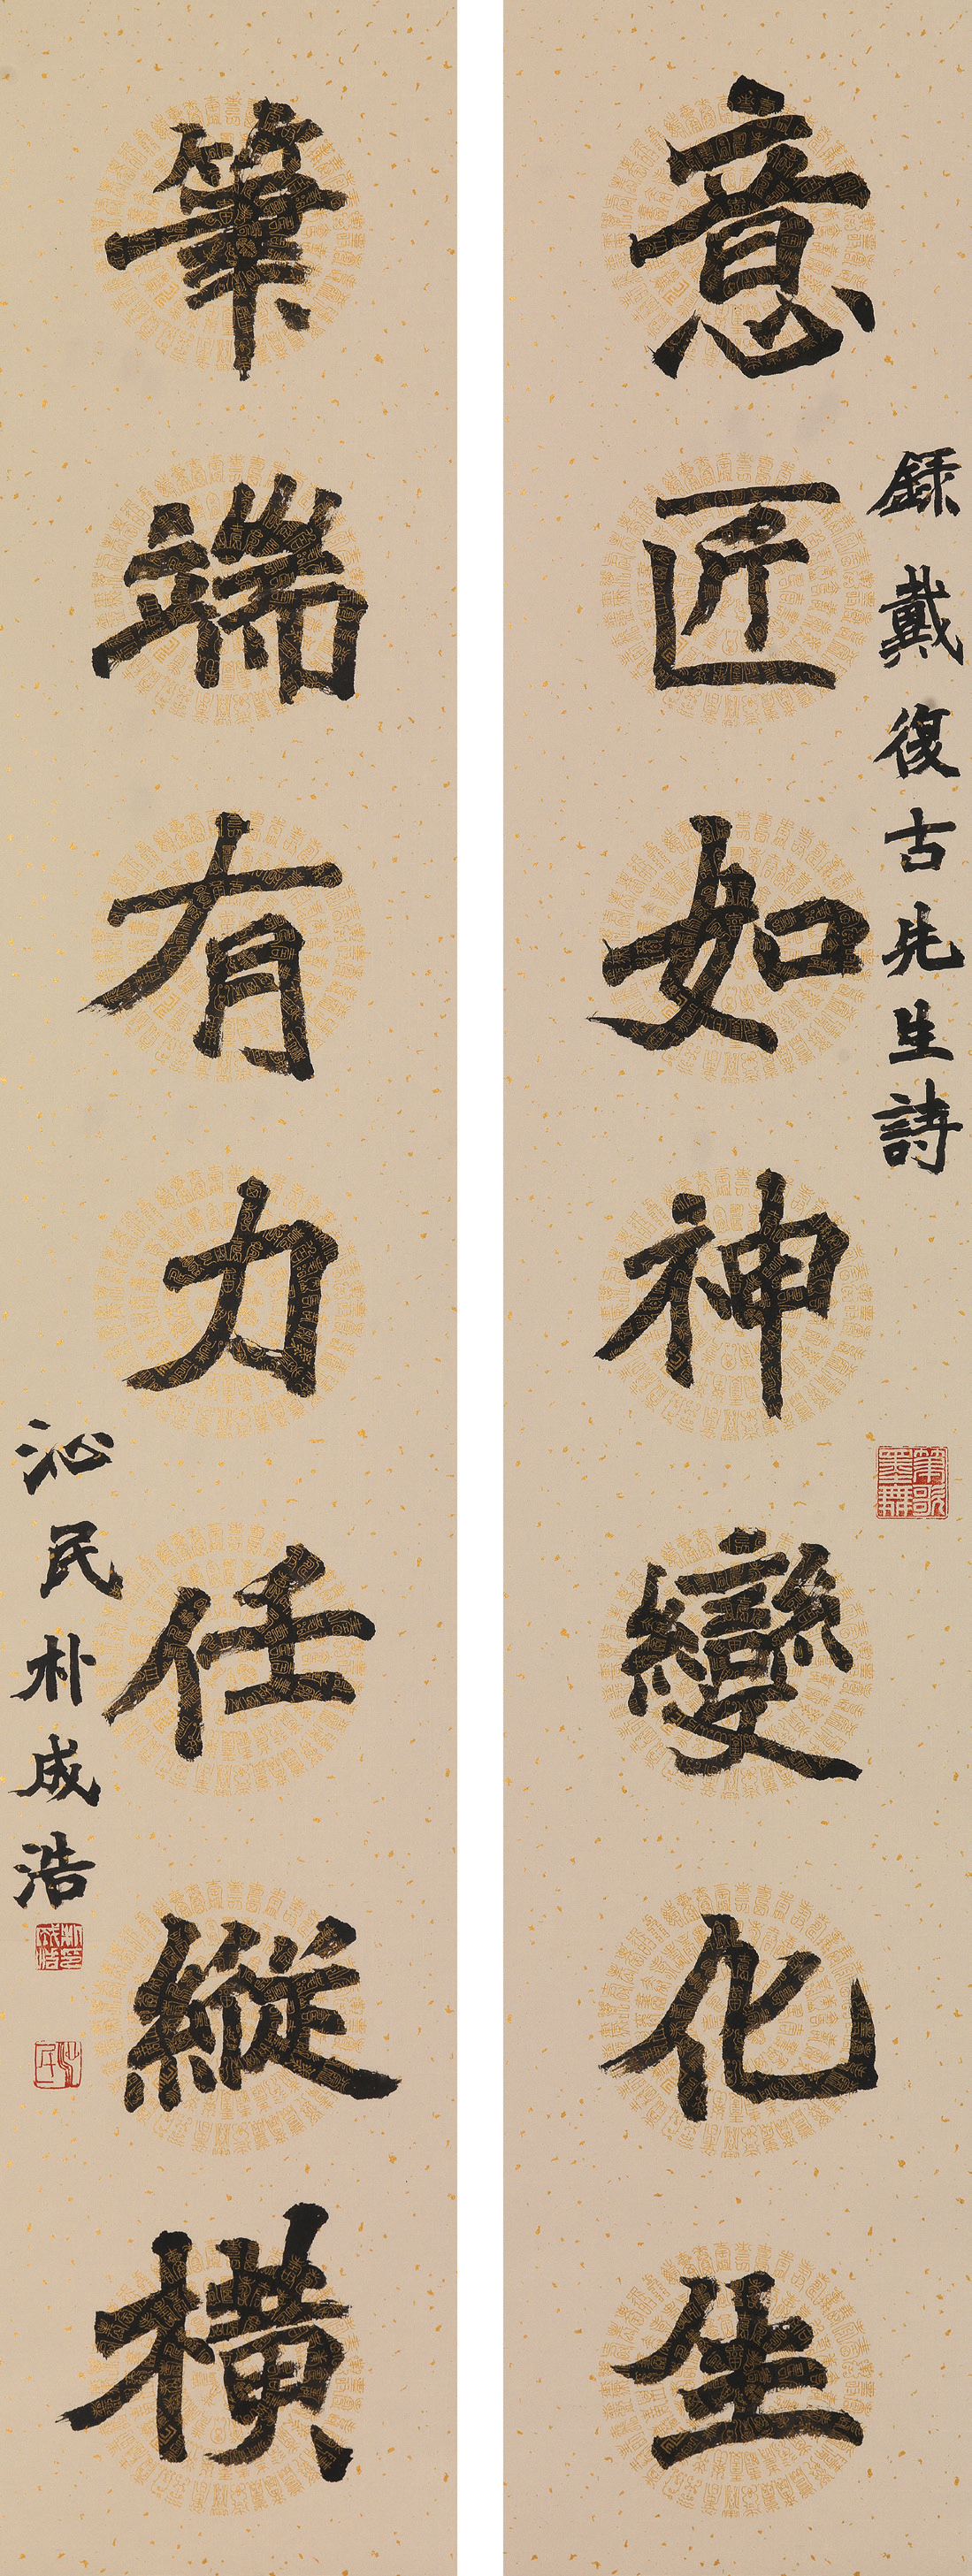 錄戴復古先生詩
意匠如神變化生
筆端有力任縱橫
沁民朴成浩